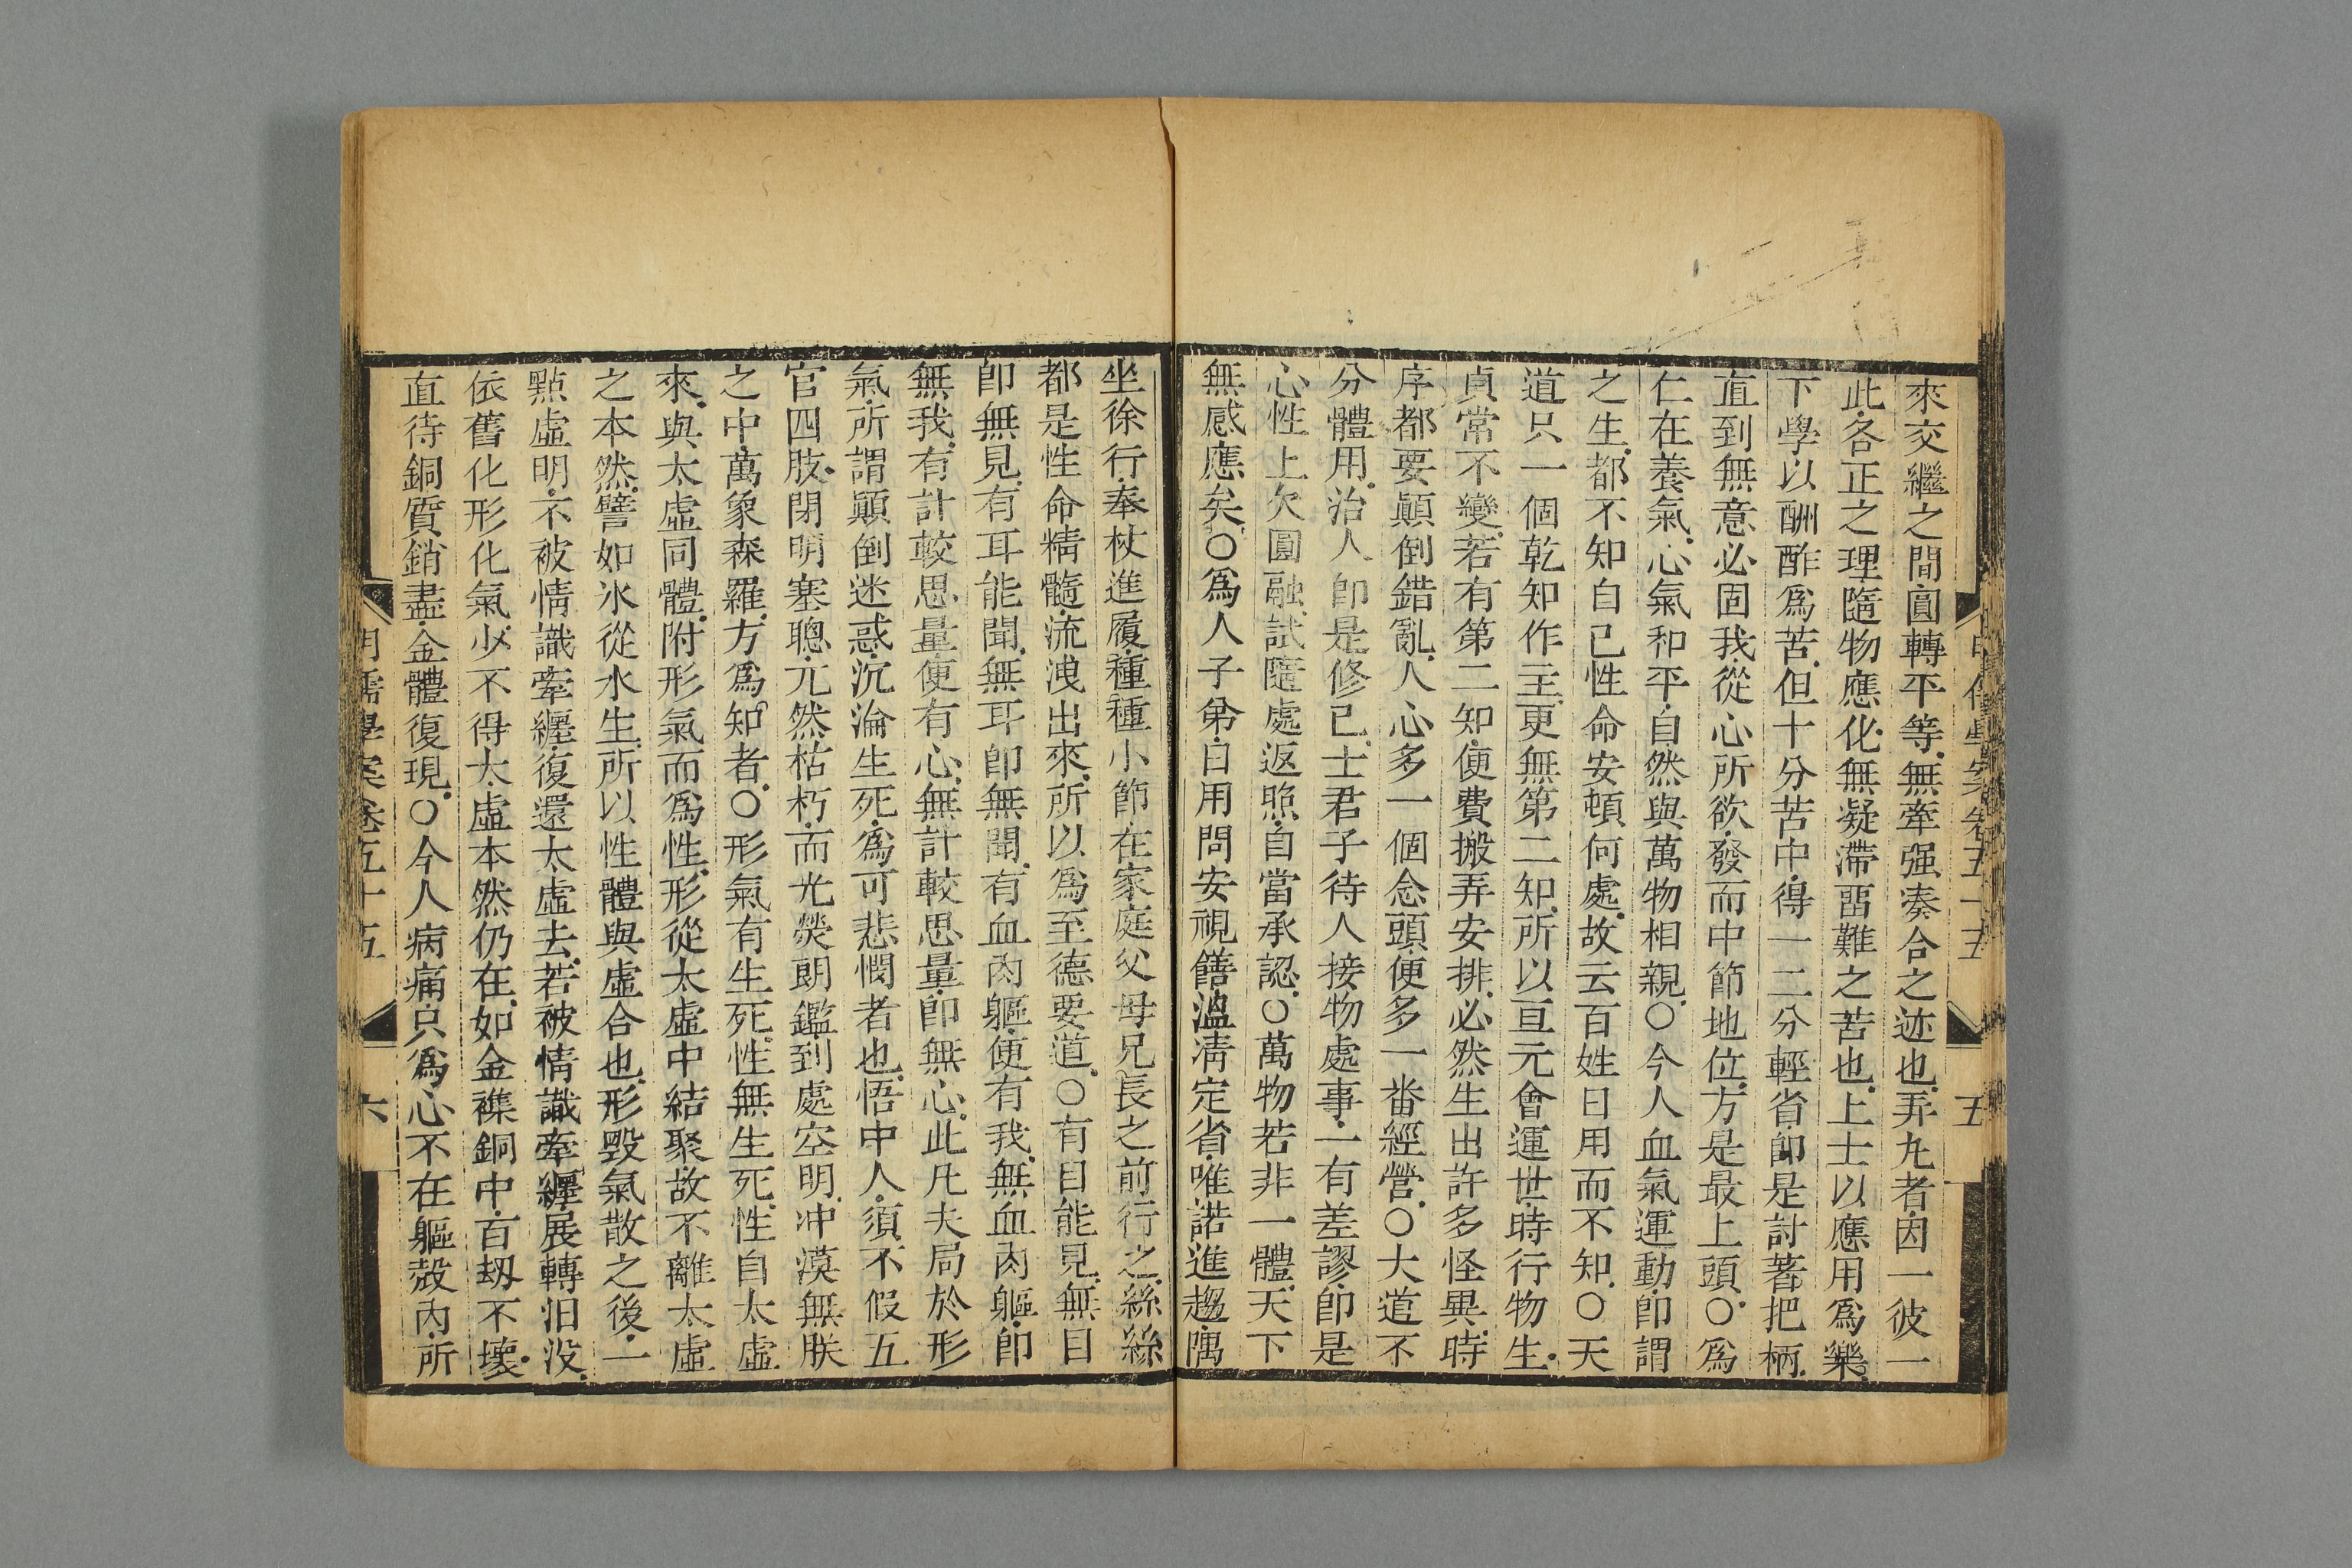 來交繼之間圓轉平等無牽强湊合之迹也弄丸者因一彼一
此各正之理隨物應化無凝滯畱難之苦也上士以應用爲樂
下學以酬酢爲苦但十分苦中得一二分輕省卽是討著把柄
直到無意必固我從心所欲發而中節地位方是最上頭○爲
仁在養氣心氣和平自然與萬物相親○今人血氣運動卽謂
之生都不知自己性命安頓何處故云百姓日用而不知○天
道只一個乾知作主更無第二知所以亘元會運世時行物生
貞常不變若有第二知便費搬弄安排必然生出許多怪異時
序都要顚倒錯亂人心多一個念頭便多一番經營○大道不
分體用治人卽是修己士君子待人接物處事一有差謬卽是
心性上欠圓融試隨處返照自當承認○萬物若非一體天下
無感應矣○爲人子弟日用問安視饍溫凊定省唯諾進趨隅
坐徐行奉杖進履種種小節在家庭父母兄長之前行之絲絲
都是性命精髓流洩出來所以爲至德要道○有目能見無目
卽無見有耳能聞無耳卽無聞有血肉軀便有我無血肉軀卽
無我有計較思量便有心無計較思量卽無心此凡夫局於形
氣所謂顚倒迷惑沉淪生死爲可悲憫者也悟中人須不假五
官四肢閉明塞聰兀然枯朽而光熒朗鑑到處空明冲漠無朕
之中萬象森羅方爲知者○形氣有生死性無生死性自太虛
來與太虛同體附形氣而爲性形從太虛中結聚故不離太虛
之本然譬如氷從水生所以性體與虛合也形毀氣散之後一
點虛明不被情識牽纏復還太虛去若被情識牽纏展轉汨没
依舊化形化氣少不得太虛本然仍在如金襍銅中百刼不壞
直待銅質銷盡金體復現○今人病痛只爲心不在軀殼内所
明儒學案卷五十五
五
明儒學案卷五十五
六